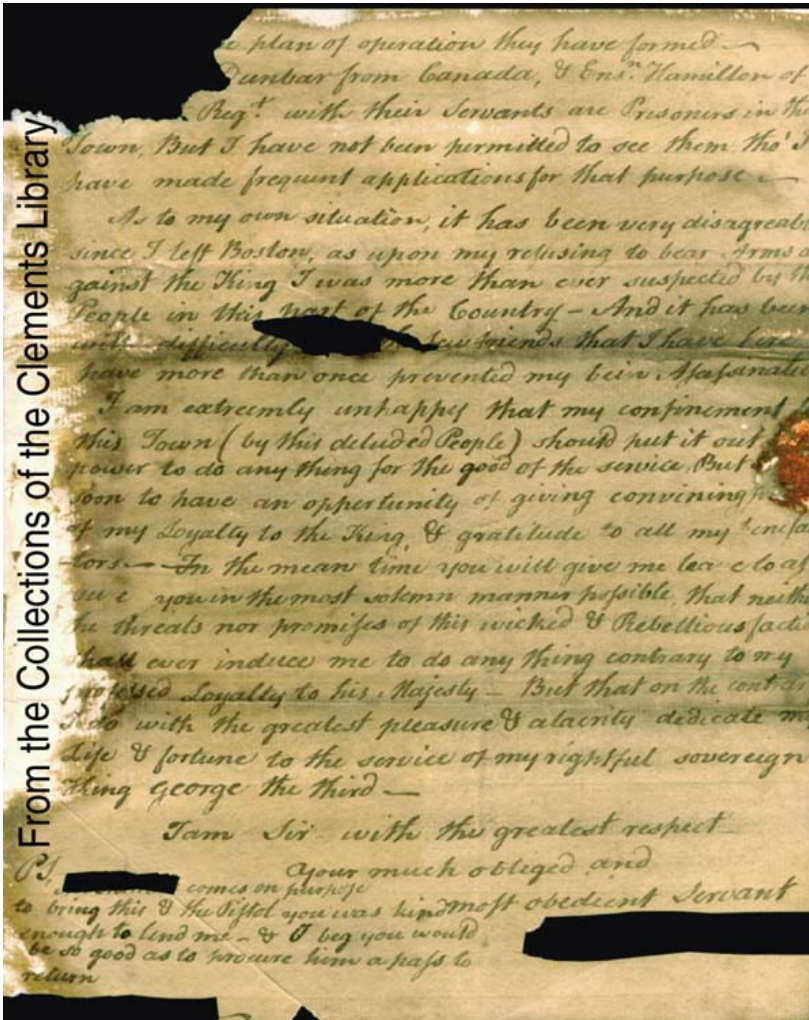 From the Collections of the Clements Library
plan of operation they have formed —
Dunbar from Canada, & Ensn. Hamilton of
Regt. with their Servants are Prisoners in
Town, But I have not been permitted to see them tho' I
have made frequent applications for that purpose —
As to my own situation, it has been very
since I left Boston, as upon my refusing to bear Arms a
gainst the King I was more than ever suspected by
People in this part of the Country – And it has been
with difficulty few friends that I have
have more than once prevented my bein
I am extremly unhappy that my confinement
this Town (by this deluded People) should put it out
power to do any thing for the good of the service, But
soon to have an oppertunity of giving convining
of my Loyalty to the King & gratitude to all my
tors — In the mean time you will give me leave to as
sure you in the most solemn manner possible, that
he threats nor promises of this wicked & Rebellious
shall ever induce me to do any thing contrary to my
professed Loyalty to his Majesty – But that on the
I do with the greatest pleasure & alacrity dedicate
Life & fortune to the service of my rightful sovereign
King George the third —
I am Sir with the greatest respect
Your much obliged and
most obedient Servant
P.S.
comes on purpose
to bring this & the Pistol you was kind
enough to lend me – & I beg you would
be so good as to procure him a pass to
return